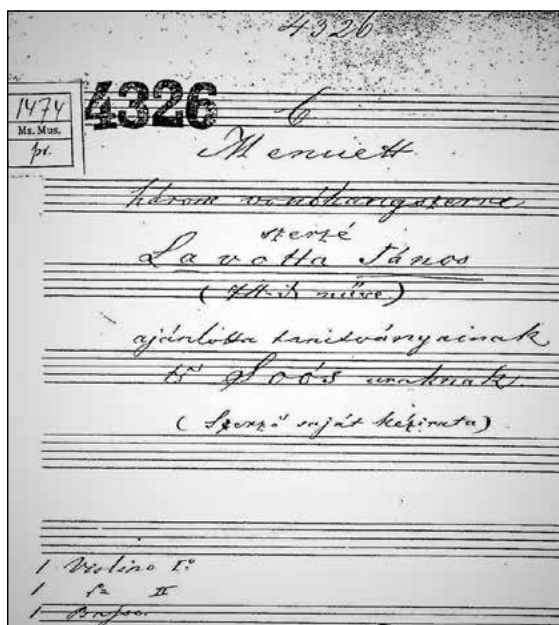 4326
1474
Ms. Mus.
pr.
4326
6
Menuett
három vonóhangszerre
szerzé
Lavotta János
műve.)
ajánlotta tanitványainak
Soós uraknak.
(Szerző saját kézirata)
1 Violino Iº
1 II
1 Basso.